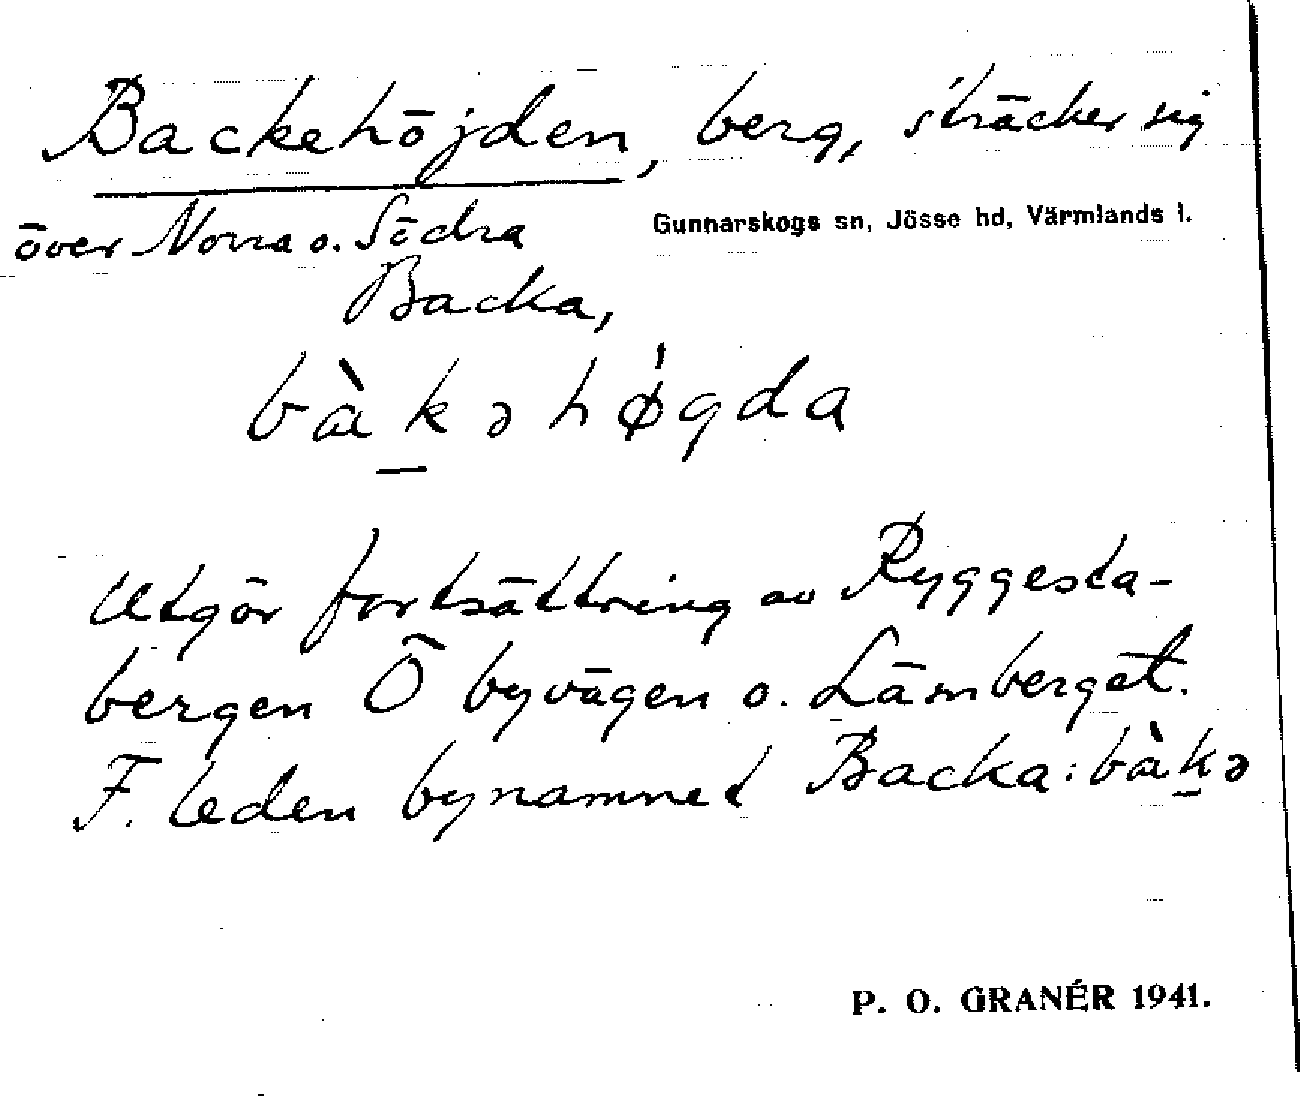 Backehöjden, berg, sträcker sig
över Norra o. Södra
Gunnarskogs sn, Jösse hd, Värmlands l.
Backa,
bàkəhǿgda
Utgör fortsättning av Ryggesta-
bergen Ö byvägen o. Lämberget.
F. leden bynamnet Backa: bàkə
P. O. GRANÉR 1941.